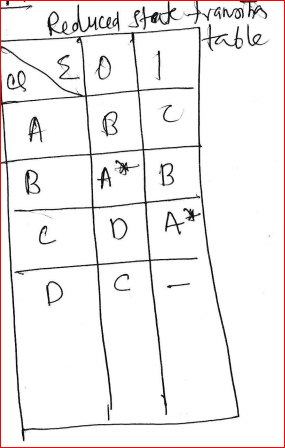 Reduced state transition
table
CS Σ 0 1
A B C
B A* B
C D A*
D C —